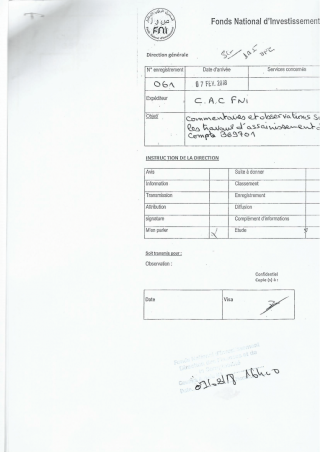 FNI
Fonds National d'Investissement
Direction générale
N° enregistrement Date d'arrivée Services concernés
061 07 FEV. 2018
Expéditeur C.A.C FNI
Objet Commentaires et observations
les travaux d'assainissement
Compte 369701
INSTRUCTION DE LA DIRECTION
Avis Suite à donner
Information Classement
Transmission Enregistrement
Attribution Diffusion
signature Complément d'informations
M'en parler Etude
Soit transmis pour :
Observation :
Confidentiel
Copie (s) à :
Date Visa